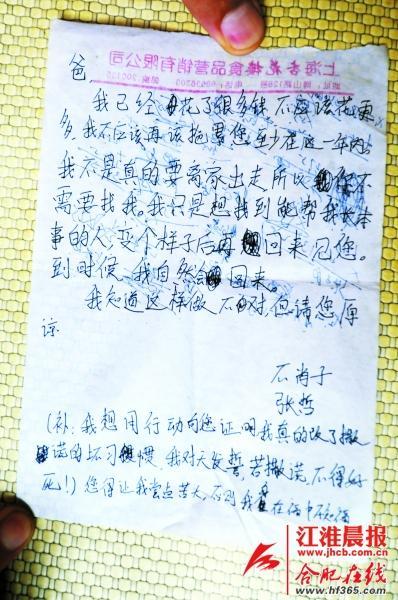 上海杏花楼食品营销有限公司
爸
我已经花了很多钱 不应该花更
多，我不应该再该拖累您，至少在这一年内。
我不是真的要离家出走所以你不
需要找我。我只是想找到能帮我长本
事的人，变个样子后再回来见您。
到时候，我自然会回来。
我知道这样做不对，但请您原
谅
不肖子
张哲
(补：我想用行动向您证明我真的改了撒
谎的坏习惯，我对天发誓，若撒谎，不得好
死！) 您得让我尝点苦头，否则我 在
江淮晨报
www.jhcb.com.cn
合肥在线
www.hf365.com